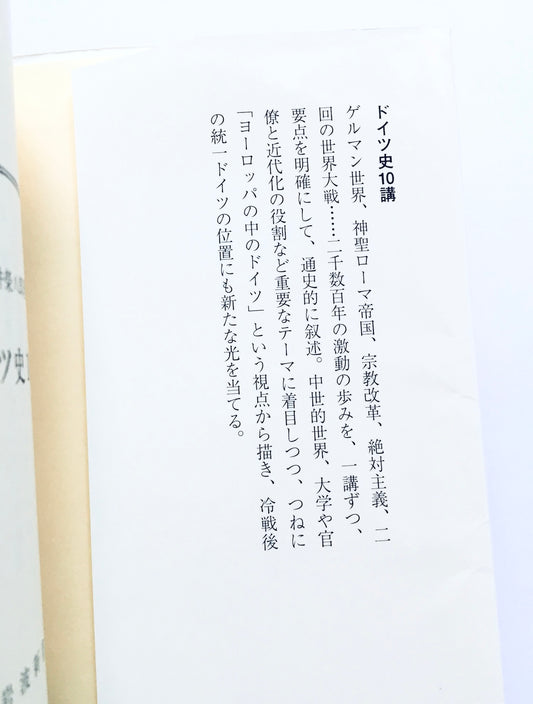 ドイツ史10講
ゲルマン世界、神聖ローマ帝国、宗教改革、絶対主義、二
回の世界大戦……二千数百年の激動の歩みを、一講ずつ、
要点を明確にして、通史的に叙述。中世的世界、大学や官
僚と近代化の役割など重要なテーマに着目しつつ、つねに
「ヨーロッパの中のドイツ」という視点から描き、冷戦後
の統一ドイツの位置にも新たな光を当てる。
ツ史